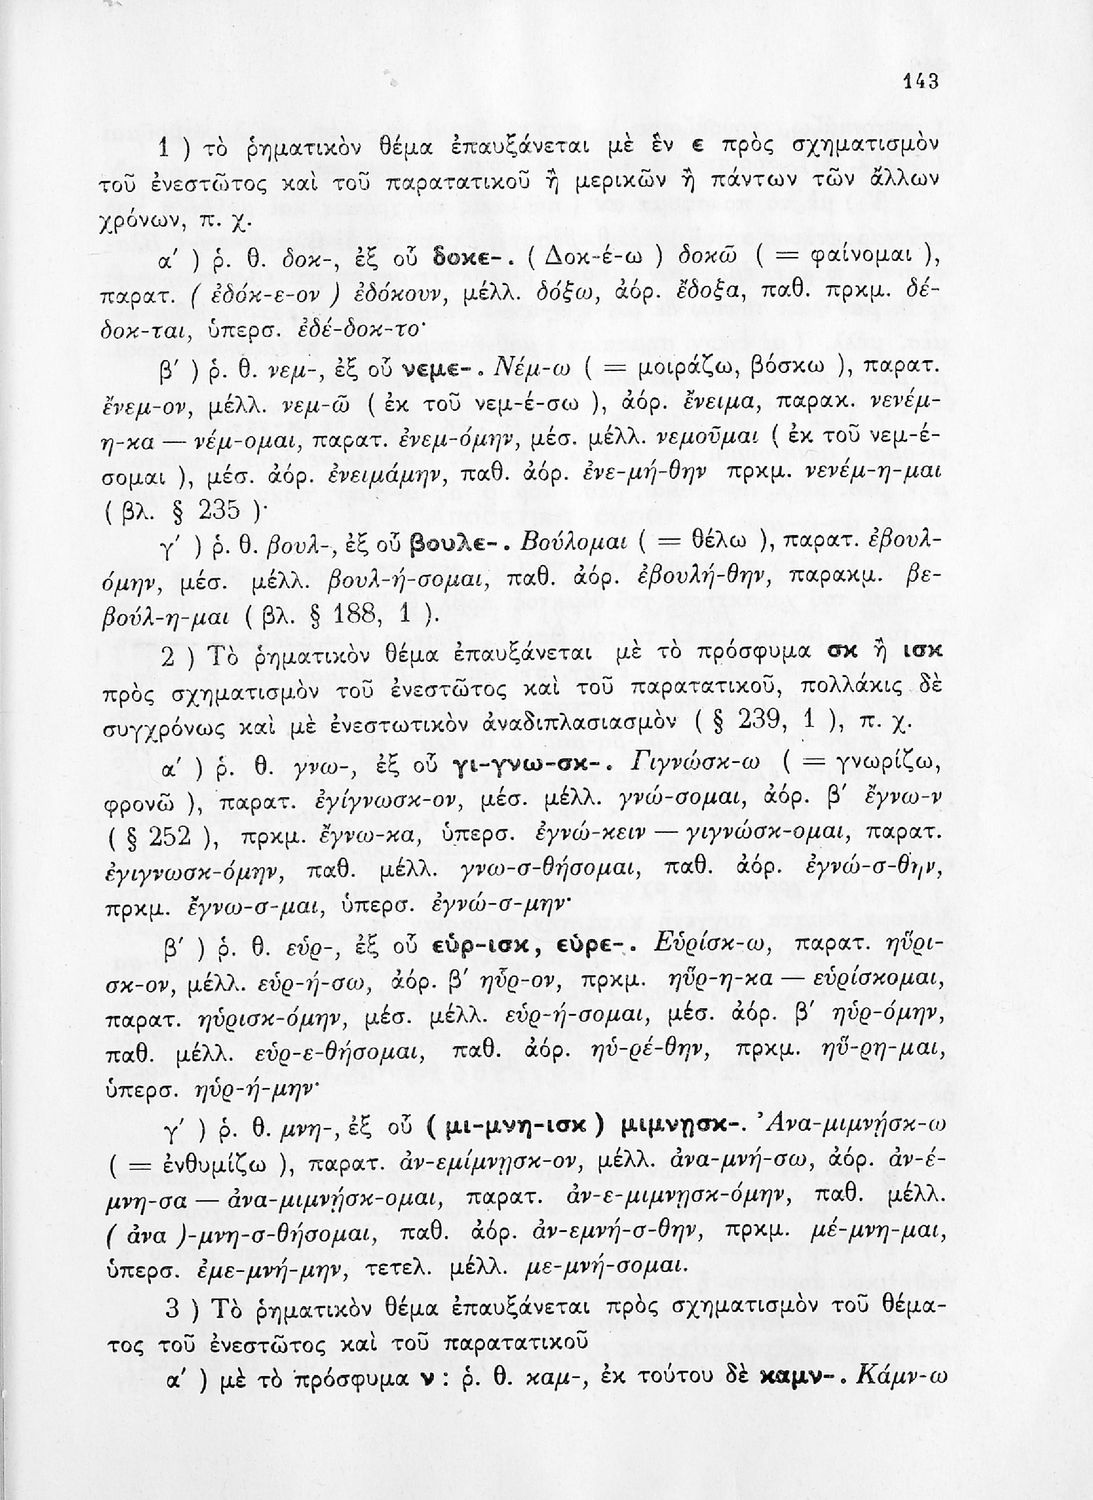 143
1 ) τὸ ῥηματικὸν θέμα ἐπαυξάνεται μὲ ἓν ε πρὸς σχηματισμὸν
τοῦ ἐνεστῶτος καὶ τοῦ παρατατικοῦ ἢ μερικῶν ἢ πάντων τῶν ἄλλων
χρόνων, π. χ.
α′ ) ῥ. θ. δοκ-, ἐξ οὗ δοκε-. ( Δοκ-έ-ω ) δοκῶ ( = φαίνομαι ),
παρατ. ( ἐδόκ-ε-ον ) ἐδόκουν, μέλλ. δόξω, ἀόρ. ἔδοξα, παθ. πρκμ. δέ-
δοκ-ται, ὑπερσ. ἐδέ-δοκ-το·
β′ ) ῥ. θ. νεμ-, ἐξ οὗ νεμε-. Νέμ-ω ( = μοιράζω, βόσκω ), παρατ.
ἔνεμ-ον, μέλλ. νεμ-ῶ ( ἐκ τοῦ νεμ-έ-σω ), ἀόρ. ἔνειμα, παρακ. νενέμ-
η-κα — νέμ-ομαι, παρατ. ἐνεμ-όμην, μέσ. μέλλ. νεμοῦμαι ( ἐκ τοῦ νεμ-έ-
σομαι ), μέσ. ἀόρ. ἐνειμάμην, παθ. ἀόρ. ἐνε-μή-θην πρκμ. νενέμ-η-μαι
( βλ. § 235 )·
γ′ ) ῥ. θ. βουλ-, ἐξ οὗ βουλε-. Βούλομαι ( = θέλω ), παρατ. ἐβουλ-
όμην, μέσ. μέλλ. βουλ-ή-σομαι, παθ. ἀόρ. ἐβουλή-θην, παρακμ. βε-
βούλ-η-μαι ( βλ. § 188, 1 ).
2 ) Τὸ ῥηματικὸν θέμα ἐπαυξάνεται μὲ τὸ πρόσφυμα σκ ἢ ισκ
πρὸς σχηματισμὸν τοῦ ἐνεστῶτος καὶ τοῦ παρατατικοῦ, πολλάκις δὲ
συγχρόνως καὶ μὲ ἐνεστωτικὸν ἀναδιπλασιασμὸν ( § 239, 1 ), π. χ.
α′ ) ῥ. θ. γνω-, ἐξ οὗ γι-γνω-σκ-. Γιγνώσκ-ω ( = γνωρίζω,
φρονῶ ), παρατ. ἐγίγνωσκ-ον, μέσ. μέλλ. γνώ-σομαι, ἀόρ. β′ ἔγνω-ν
( § 252 ), πρκμ. ἔγνω-κα, ὑπερσ. ἐγνώ-κειν — γιγνώσκ-ομαι, παρατ.
ἐγιγνωσκ-όμην, παθ. μέλλ. γνω-σ-θήσομαι, παθ. ἀόρ. ἐγνώ-σ-θην,
πρκμ. ἔγνω-σ-μαι, ὑπερσ. ἐγνώ-σ-μην·
β′ ) ῥ. θ. εὑρ-, ἐξ οὗ εὑρ-ισκ, εὑρε-. Εὑρίσκ-ω, παρατ. ηὕρι-
σκ-ον, μέλλ. εὑρ-ή-σω, ἀόρ. β′ ηὗρ-ον, πρκμ. ηὕρ-η-κα — εὑρίσκομαι,
παρατ. ηὑρισκ-όμην, μέσ. μέλλ. εὑρ-ή-σομαι, μέσ. ἀόρ. β′ ηὑρ-όμην,
παθ. μέλλ. εὑρ-ε-θήσομαι, παθ. ἀόρ. ηὑ-ρέ-θην, πρκμ. ηὕ-ρη-μαι,
ὑπερσ. ηὑρ-ή-μην·
γ′ ) ῥ. θ. μνη-, ἐξ οὗ ( μι-μνη-ισκ ) μιμνῃσκ-. Ἀνα-μιμνῄσκ-ω
( = ἐνθυμίζω ), παρατ. ἀν-εμίμνῃσκ-ον, μέλλ. ἀνα-μνή-σω, ἀόρ. ἀν-έ-
μνη-σα — ἀνα-μιμνῄσκ-ομαι, παρατ. ἀν-ε-μιμνῃσκ-όμην, παθ. μέλλ.
( ἀνα )-μνη-σ-θήσομαι, παθ. ἀόρ. ἀν-εμνή-σ-θην, πρκμ. μέ-μνη-μαι,
ὑπερσ. ἐμε-μνή-μην, τετελ. μέλλ. με-μνή-σομαι.
3 ) Τὸ ῥηματικὸν θέμα ἐπαυξάνεται πρὸς σχηματισμὸν τοῦ θέμα-
τος τοῦ ἐνεστῶτος καὶ τοῦ παρατατικοῦ
α′ ) μὲ τὸ πρόσφυμα ν : ῥ. θ. καμ-, ἐκ τούτου δὲ καμν-. Κάμν-ω